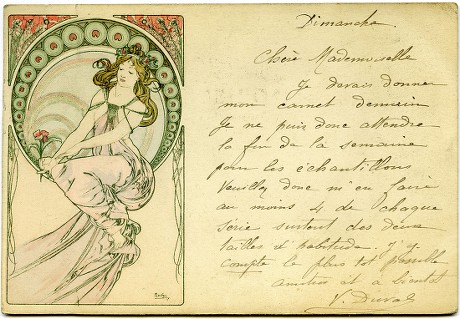 Dimanche.
Chère Mademoiselle
Je devais donner
mon carnet demain
Je ne puis donc attendre
la fin de la semaine
pour les échantillons
Veuillez donc m'en faire
au moins 4 de chaque
série surtout des deux
tailles d'habitude. J'y
compte le plus tôt possible
amitiés et à bientot
V. Duval